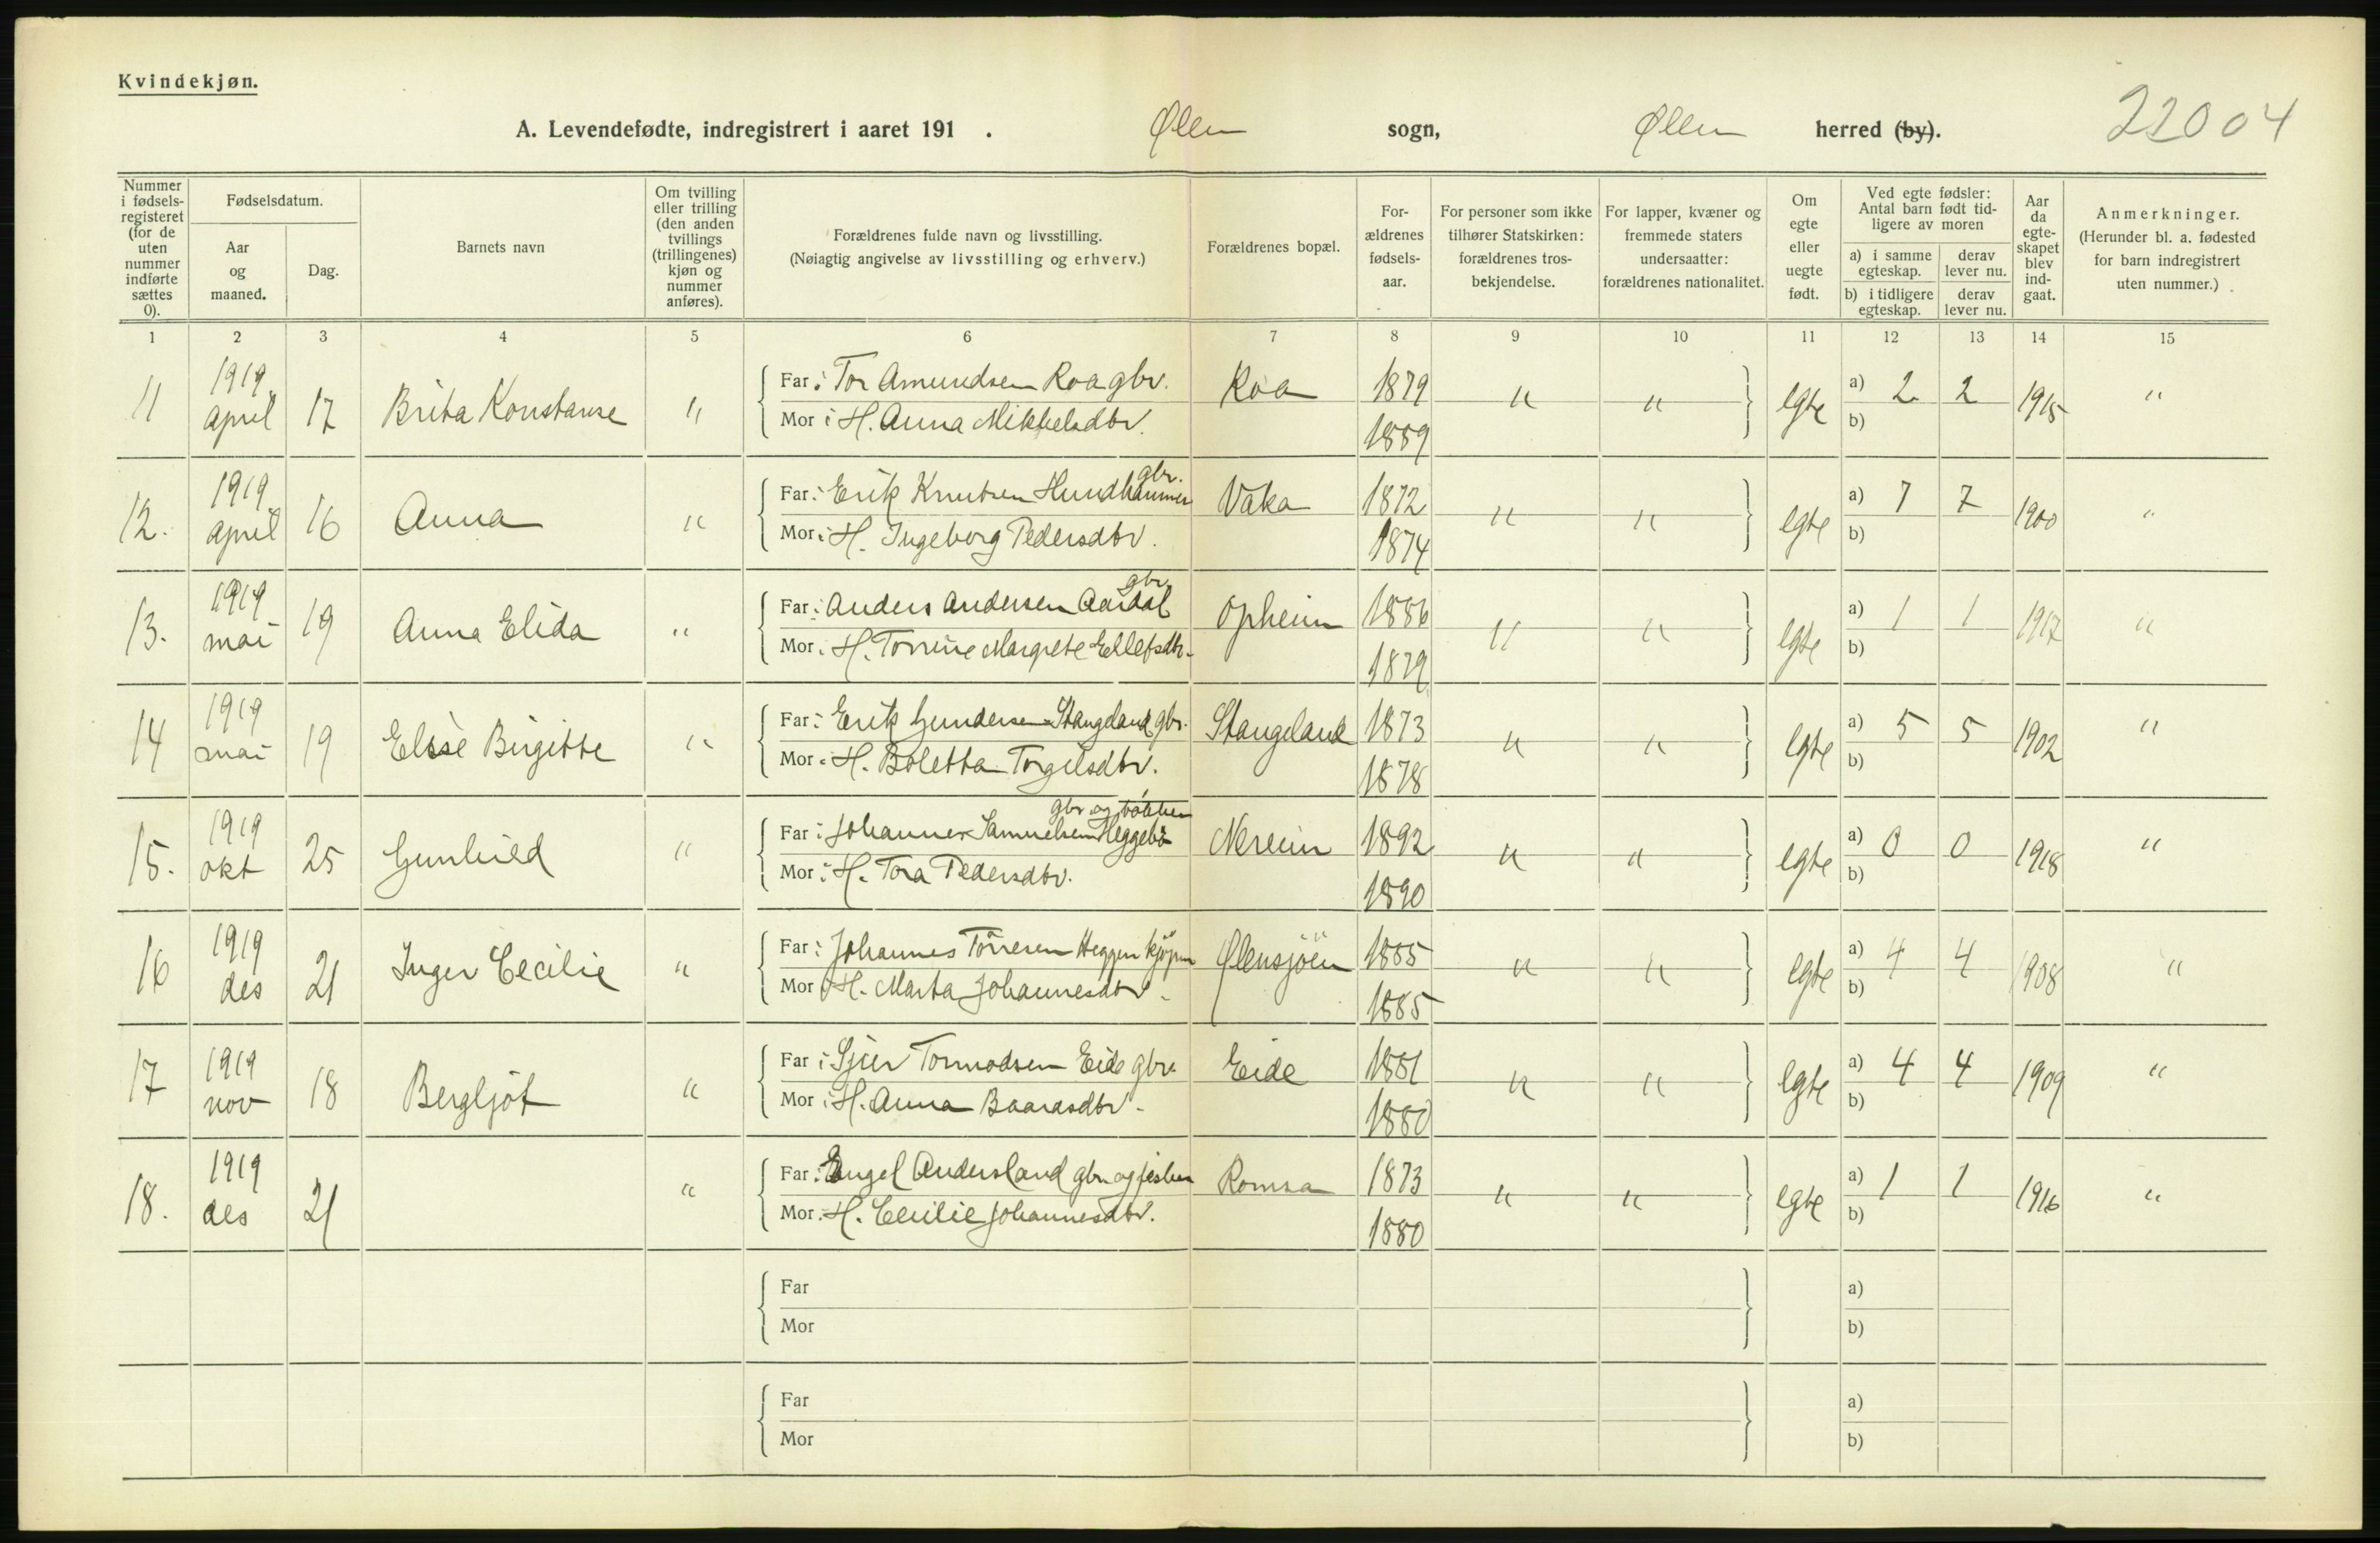 Kvindekjøn.
A. Levendefødte, indregistrert i aaret 191 . Ølen sogn, Ølen herred (by). 22004
Nummer i fødsels-registeret (for de uten nummer indførte sættes 0).
Fødselsdatum.
Aar og maaned.
Dag.
Barnets navn
Om tvilling eller trilling (den anden tvillings (trillingenes) kjøn og nummer anføres).
Forældrenes fulde navn og livsstilling.
(Nøiagtig angivelse av livsstilling og erhverv.)
Forældrenes bopæl.
For-ældrenes fødsels-aar.
For personer som ikke tilhører Statskirken: forældrenes tros-bekjendelse.
For lapper, kvæner og fremmede staters undersaatter: forældrenes nationalitet.
Om egte eller uegte født.
Ved egte fødsler: Antal barn født tid-ligere av moren
a) i samme egteskap.
derav lever nu.
b) i tidligere egteskap.
derav lever nu.
Aar da egte-skapet blev ind-gaat.
Anmerkninger.
(Herunder bl. a. fødested for barn indregistrert uten nummer.)
1 2 3 4 5 6 7 8 9 10 11 12 13 14 15
11 1919 april 17 Brita Konstanse " Far: Tor Amundsen Roa gbr. Roa 1879 " " egte a) 2 2 1915 "
Mor: H. Anna Mikkelsdtr. 1889 b)
12. 1919 april 16 Anna " Far: Erik Knutsen Hundhammer gbr. Vaka 1872 " " egte a) 7 7 1900 "
Mor: H. Ingeborg Pedersdtr. 1874 b)
13. 1919 mai 19 Anna Elida " Far: Anders Andersen Aardal gbr. Opheim 1886 " " egte a) 1 1 1917 "
Mor: H. Torrine Margrete Ellefsdtr. 1879 b)
14 1919 mai 19 Elise Birgitte " Far: Erik Gundersen Stangeland gbr. Stangeland 1873 " " egte a) 5 5 1902 "
Mor: H. Boletta Torgilsdtr. 1878 b)
15. 1919 okt 25 Gunhild " Far: Johannes Samuelsen Heggebø gbr. og Nereim 1892 " " egte a) 0 0 1918 "
Mor: H. Tora Pedersdtr. 1890 b)
16 1919 des 21 Inger Cecilie " Far: Johannes Törresen Heggen Ølensjöen 1885 " " egte a) 4 4 1908 "
Mor H. Marta Johannesdtr. 1885 b)
17 1919 nov 18 Bergljot " Far: Sjur Tormodsen Eide gbr. Eide 1881 " " egte a) 4 4 1909 "
Mor: H. Anna Baarasdtr. 1880 b)
18. 1919 des 21 " Far: Engel Andersland gbr. og fisker Romsa 1873 " " egte a) 1 1 1916 "
Mor: H. Cecilie Johannesdtr. 1880 b)
Far a)
Mor b)
Far a)
Mor b)